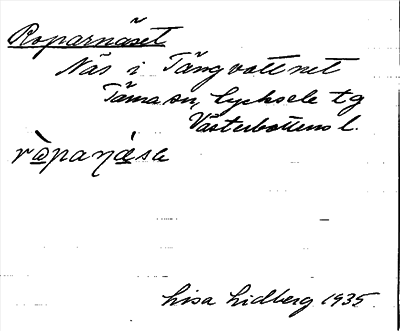 Roparnäset
Näs i Tängvattnet
Tärna sn, Lycksele tg
Västerbottens l.
rò̲paɳä̀se
Lisa Lidberg 1935.